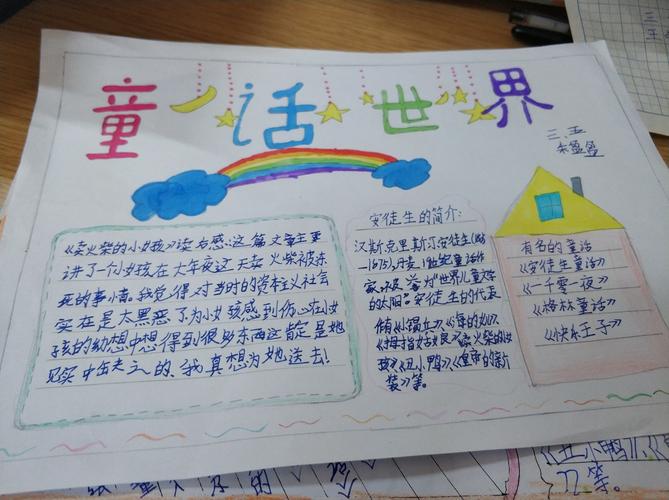 童话世界
三、五
《卖火柴的小女孩》读后感:这篇文章主要
讲了个小女孩在大年夜这天卖火柴被冻
死的事情。我觉得对当时的资本主义社会
实在是太黑恶了为小女孩感到伤心在小女
孩的幻想中想得到很多东西这肯定是她
现实中缺失的、我真想为她送去!
安徒生的简介:
汉斯克里斯汀安徒生
被誉为"世界儿童文学
的太阳"安徒生的代表
《拇指姑娘》《卖火柴的小女
孩》《丑小鸭》《皇帝的新
装》等。
有名的童话
《安徒生童话》
《一千零一夜》
《格林童话》
《快乐王子》
《丑小鸭》
等。